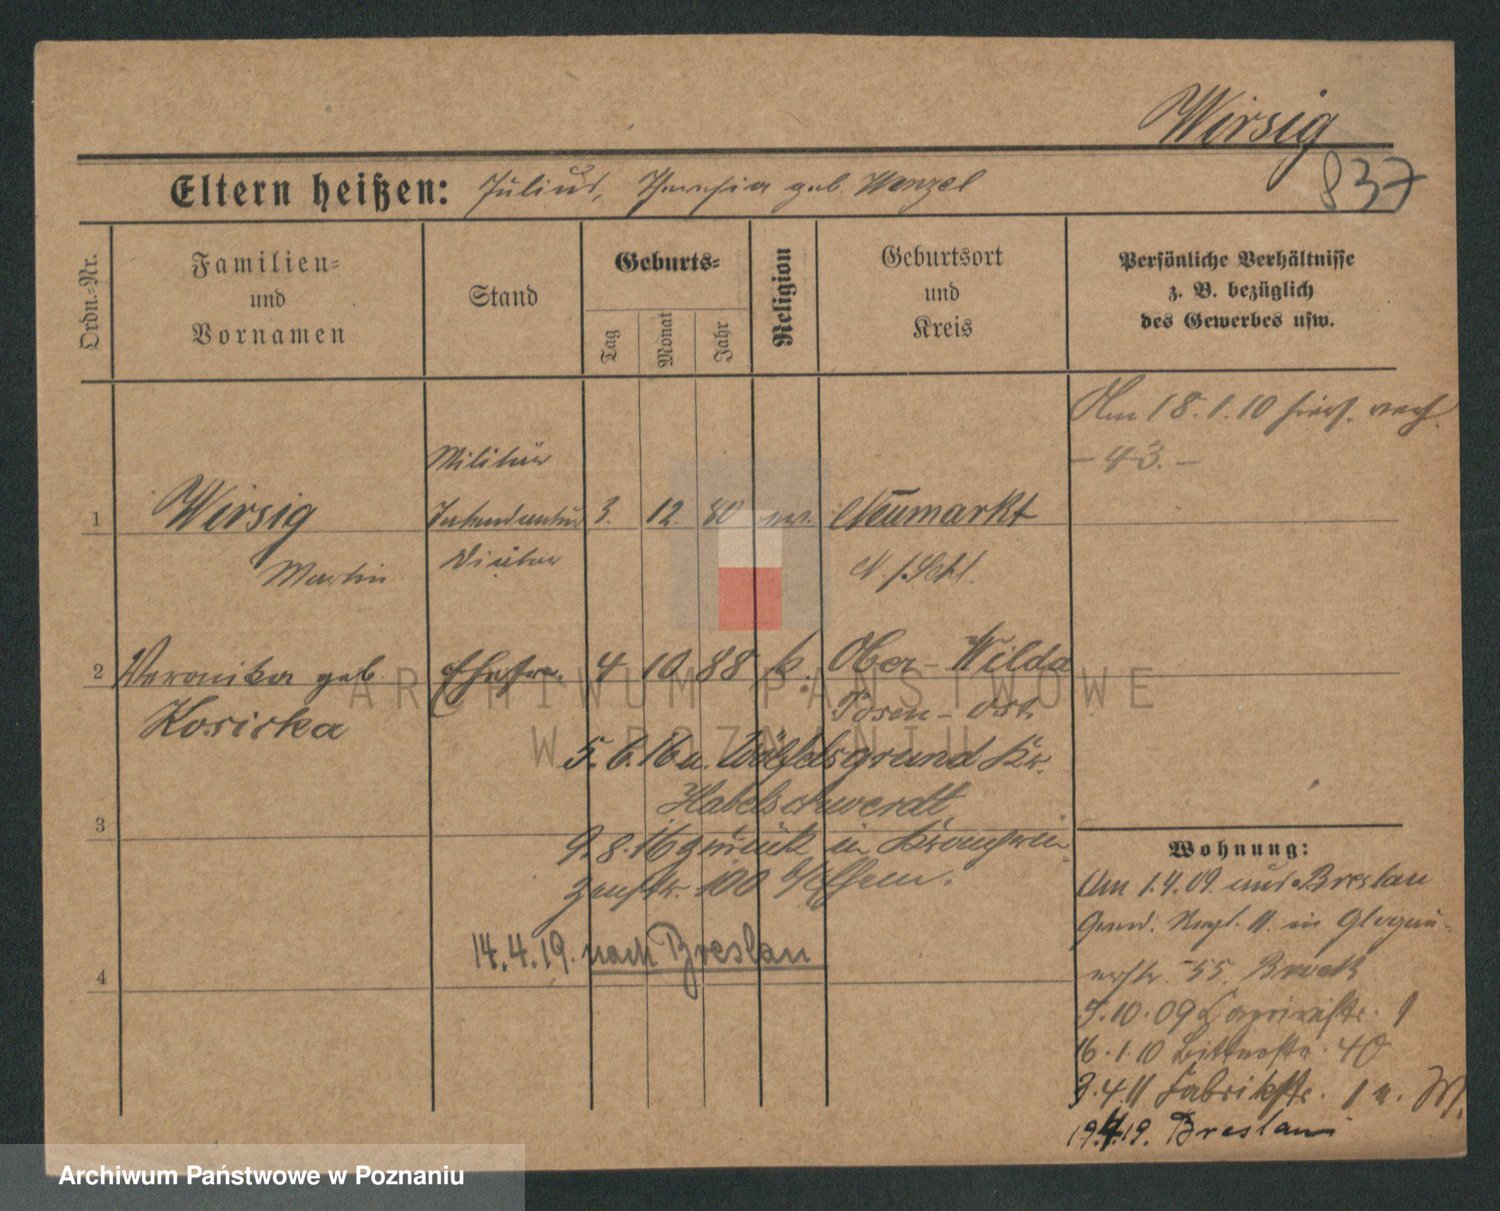 Wirsig
837
Eltern heißen: Julius, Theresia geb. Wenzel
Ordn.-Nr.
Familien-
und
Vornamen
Stand
Geburts-
Tag
Monat
Jahr
Religion
Geburtsort
und
Kreis
Persönliche Verhältnisse
z. B. bezüglich
des Gewerbes usw.
Am 18.1.10 hiers. verh.
- 43. -
Militär
1 Wirsig Intendantur 3. 12. 80 ev. Neumarkt
Martin Diätar N/Schl.
2 Veronika geb. Ehefr. 4 10 88 k. Ober-Wilda
Kosicka Posen-Ost
5.6.16 n. Wölfelsgrund Kr.
Habelschwerdt
3
9.8.16 zurück in Kronprin-
zenstr. 100 b/
14.4.19. nach Breslau
4
Wohnung:
Am 1.4.09. Breslau
in Glogau-
erstr. 55.
5.10.09 Caprivistr. 1
16.1.10 Bittnerstr. 40
3.4.11 Fabrikstr. 1
19.4.19. Breslau
ARCHIWUM PAŃSTWOWE
W POZNANIU
Archiwum Państwowe w Poznaniu